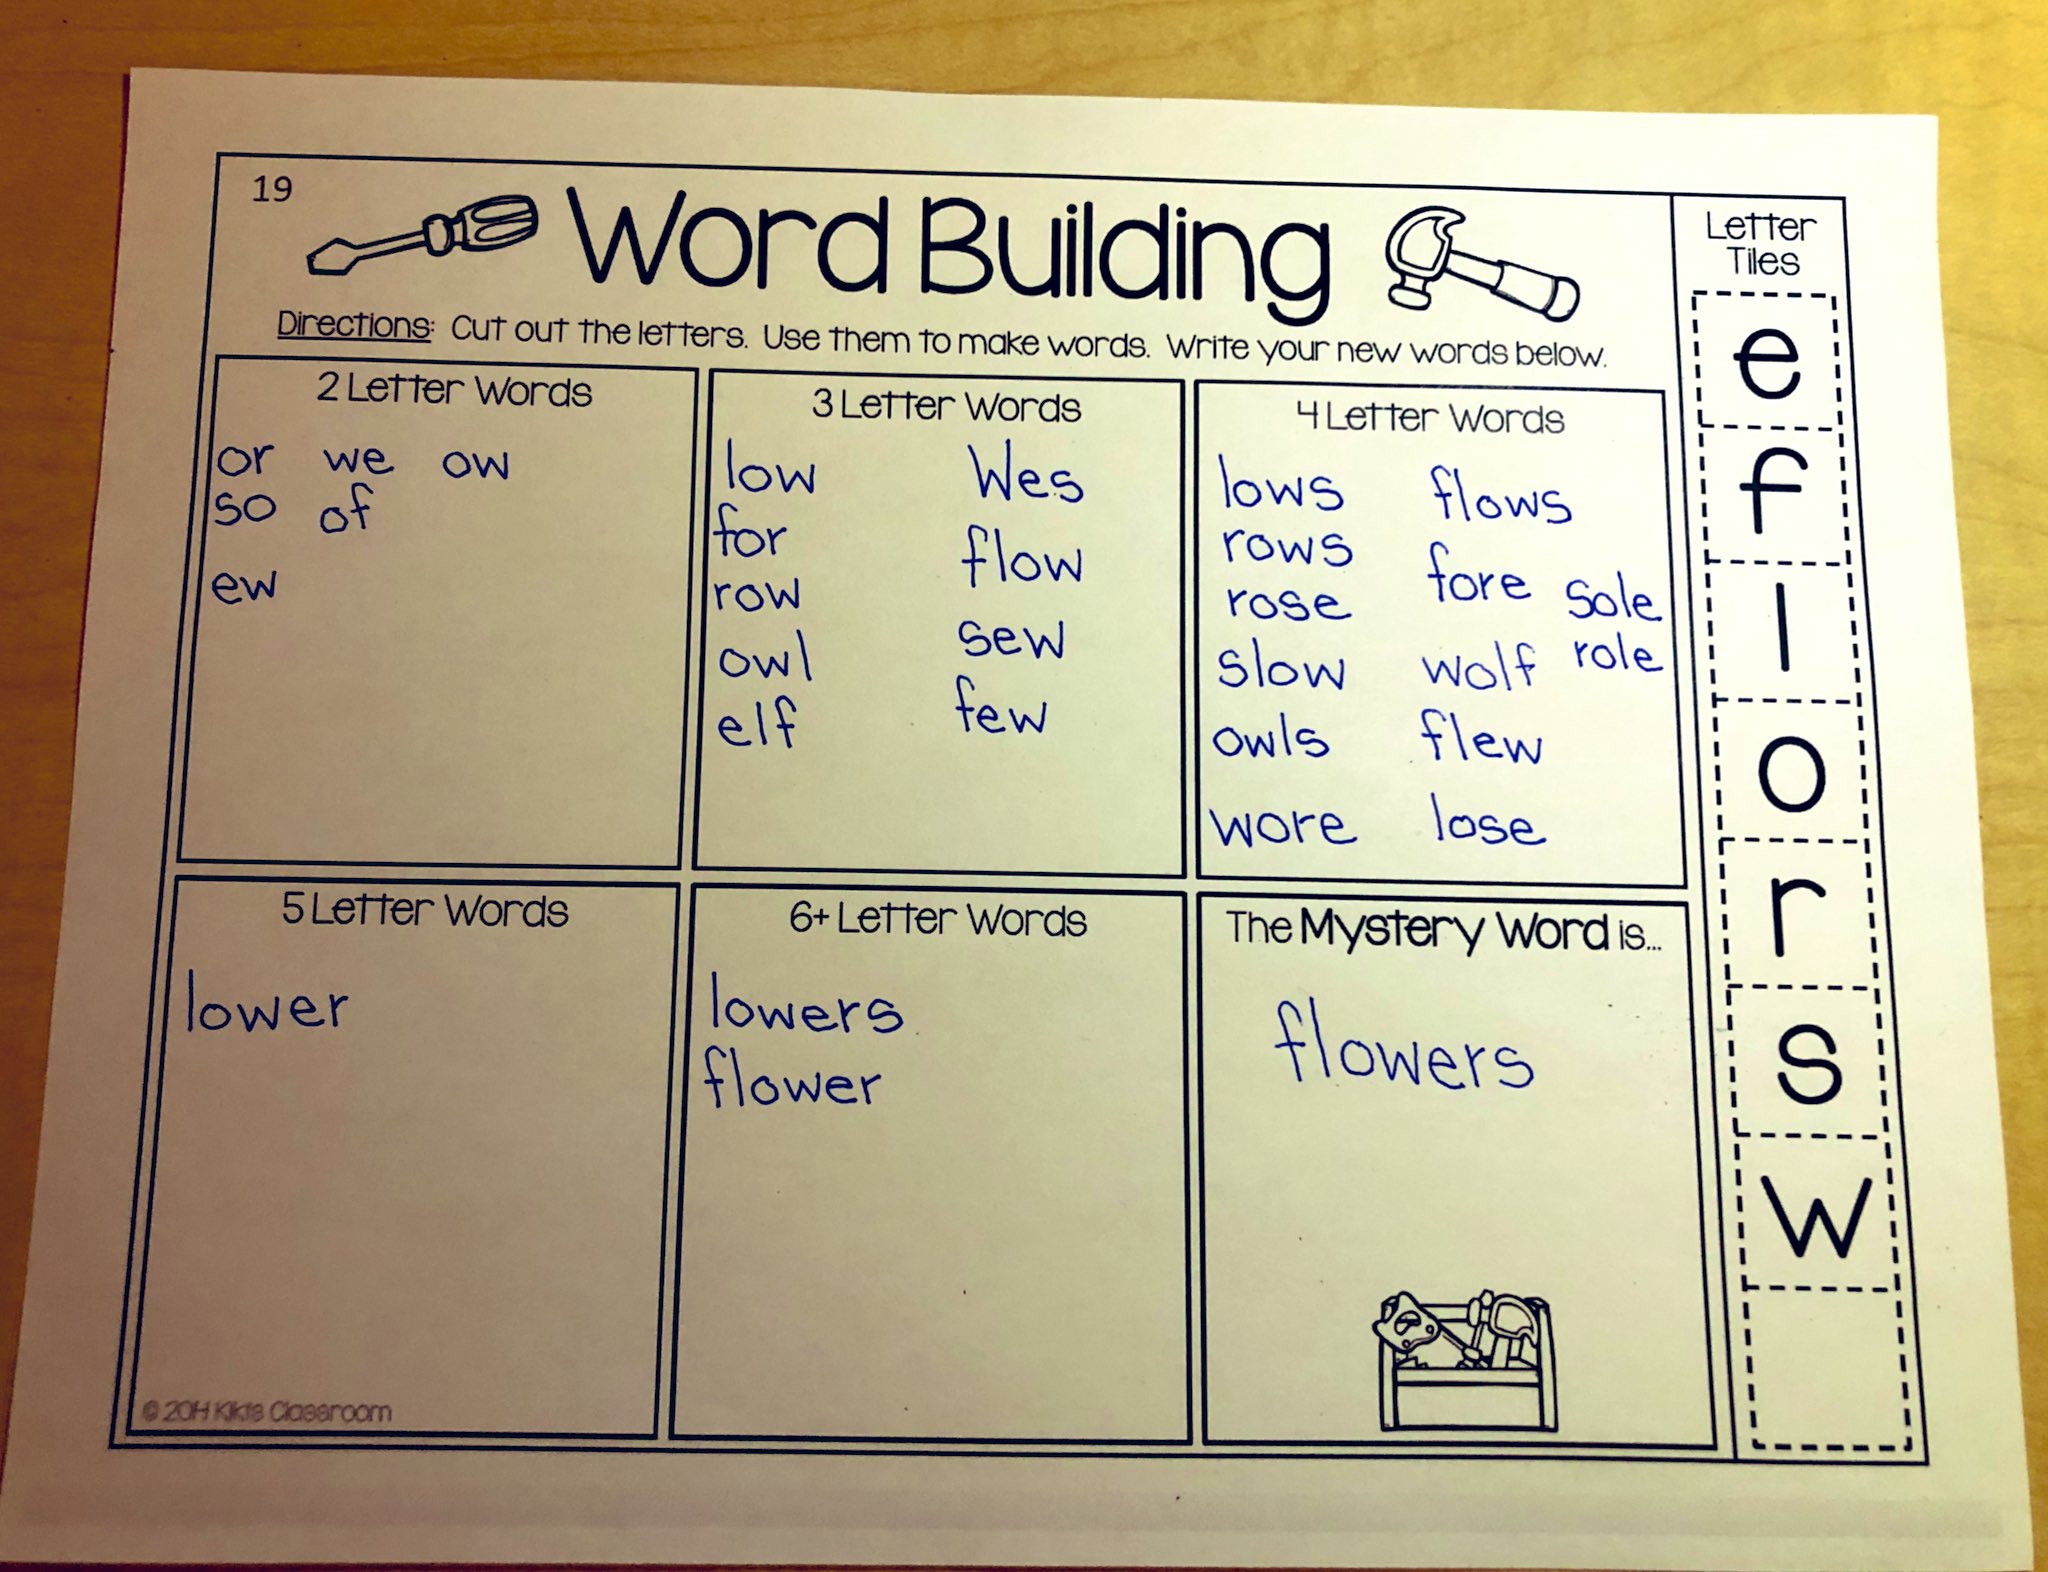 19
Word Building
Directions: Cut out the letters. Use them to make words. Write your new words below.
2 Letter Words
or we ow
so of
ew
3 Letter Words
low Wes
for flow
row sew
owl few
elf
4 Letter Words
lows flows
rows fore sole
rose wolf role
slow flew
owls lose
wore
5 Letter Words
lower
6+ Letter Words
lowers
flower
The Mystery Word is...
flowers
© 2014 Kiki's Classroom
Letter
Tiles
e
f
l
o
r
s
w